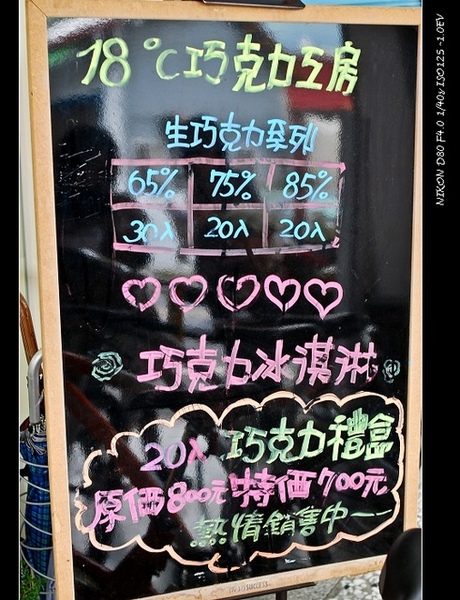 18℃巧克力工房
生巧克力系列
65% 75% 85%
30入 20入 20入
巧克力冰淇淋
20入 巧克力禮盒
原価800元 特価700元
熱情銷售中——
NIKON D80 F4.0 1/40s ISO125 -1.0EV